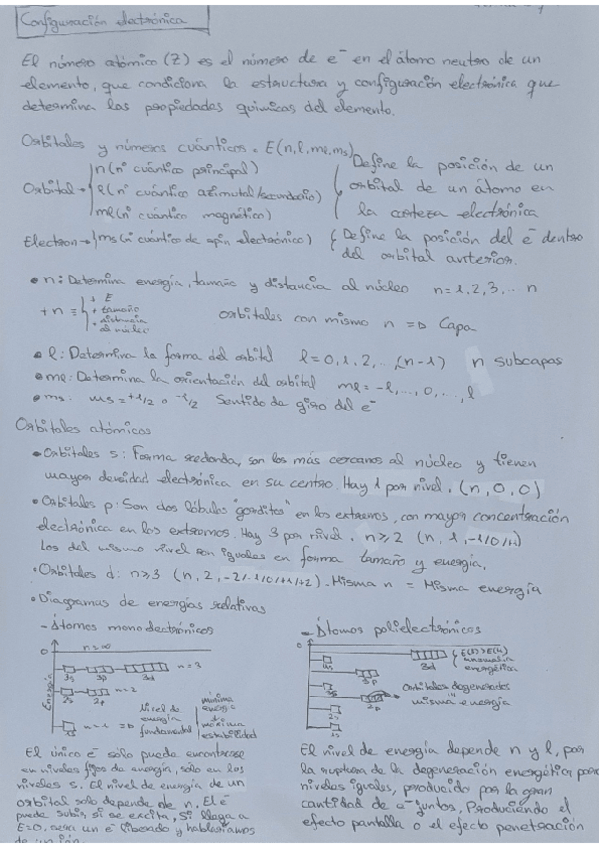 Configuración electrónica
El número atómico (Z) es el número de e⁻ en el átomo neutro de un
elemento, que condiciona la estructura y configuración electrónica que
determina las propiedades químicas del elemento.
Orbitales y números cuánticos = E(n, l, ml, ms)
Orbital → { n (nº cuántico principal)
l (nº cuántico azimutal/secundario)
ml (nº cuántico magnético)
{ Define la posición de un
orbital de un átomo en
la corteza electrónica
Electron → { ms (nº cuántico de spin electrónico)
{ Define la posición del e⁻ dentro
del orbital anterior.
• n: Determina energía, tamaño y distancia al núcleo n=1,2,3,.. n
+n = { + E
+ tamaño
+ distancia
al núcleo
orbitales con mismo n => Capa
• l: Determina la forma del orbital l=0,1,2,..,(n-1) n subcapas
• ml: Determina la orientación del orbital ml=-l,...,0,...,l
• ms: ms=+1/2 o -1/2 Sentido de giro del e⁻
Orbitales atómicos
• Orbitales s: Forma redonda, son los más cercanos al núcleo y tienen
mayor densidad electrónica en su centro. Hay 1 por nivel. (n, 0, 0)
• Orbitales p: Son dos lóbulos "gorditos" en los extremos, con mayor concentración
electrónica en los extremos. Hay 3 por nivel. n≥2 (n, 1, -1/0/+1)
Los del mismo nivel son iguales en forma tamaño y energía.
• Orbitales d: n≥3 (n, 2, -2/-1/0/+1/+2). Misma n = Misma energía
• Diagramas de energías relativas
- Átomos monoelectrónicos
0 n=∞
3s 3p 3d n=3
2s 2p n=2
1s n=1 => Nivel de
energía
fundamental
máxima
estabilidad
Energía
El único e⁻ sólo puede encontrarse
en niveles fijos de energía, sólo en los
niveles s. El nivel de energía de un
orbital solo depende de n. El e⁻
puede subir, si se excita, si llega a
E=0, sería un e⁻ liberado y hablaríamos
de un ión.
- Átomos polielectrónicos
0
4s 3d { anomalía
energética
3p
3s
2p Orbitales degenerados
misma energía
2s
1s
El nivel de energía depende n y l, por
la ruptura de la degeneración energética por
niveles iguales, producido por la gran
cantidad de e⁻ juntos. Produciendo el
efecto pantalla o el efecto penetración